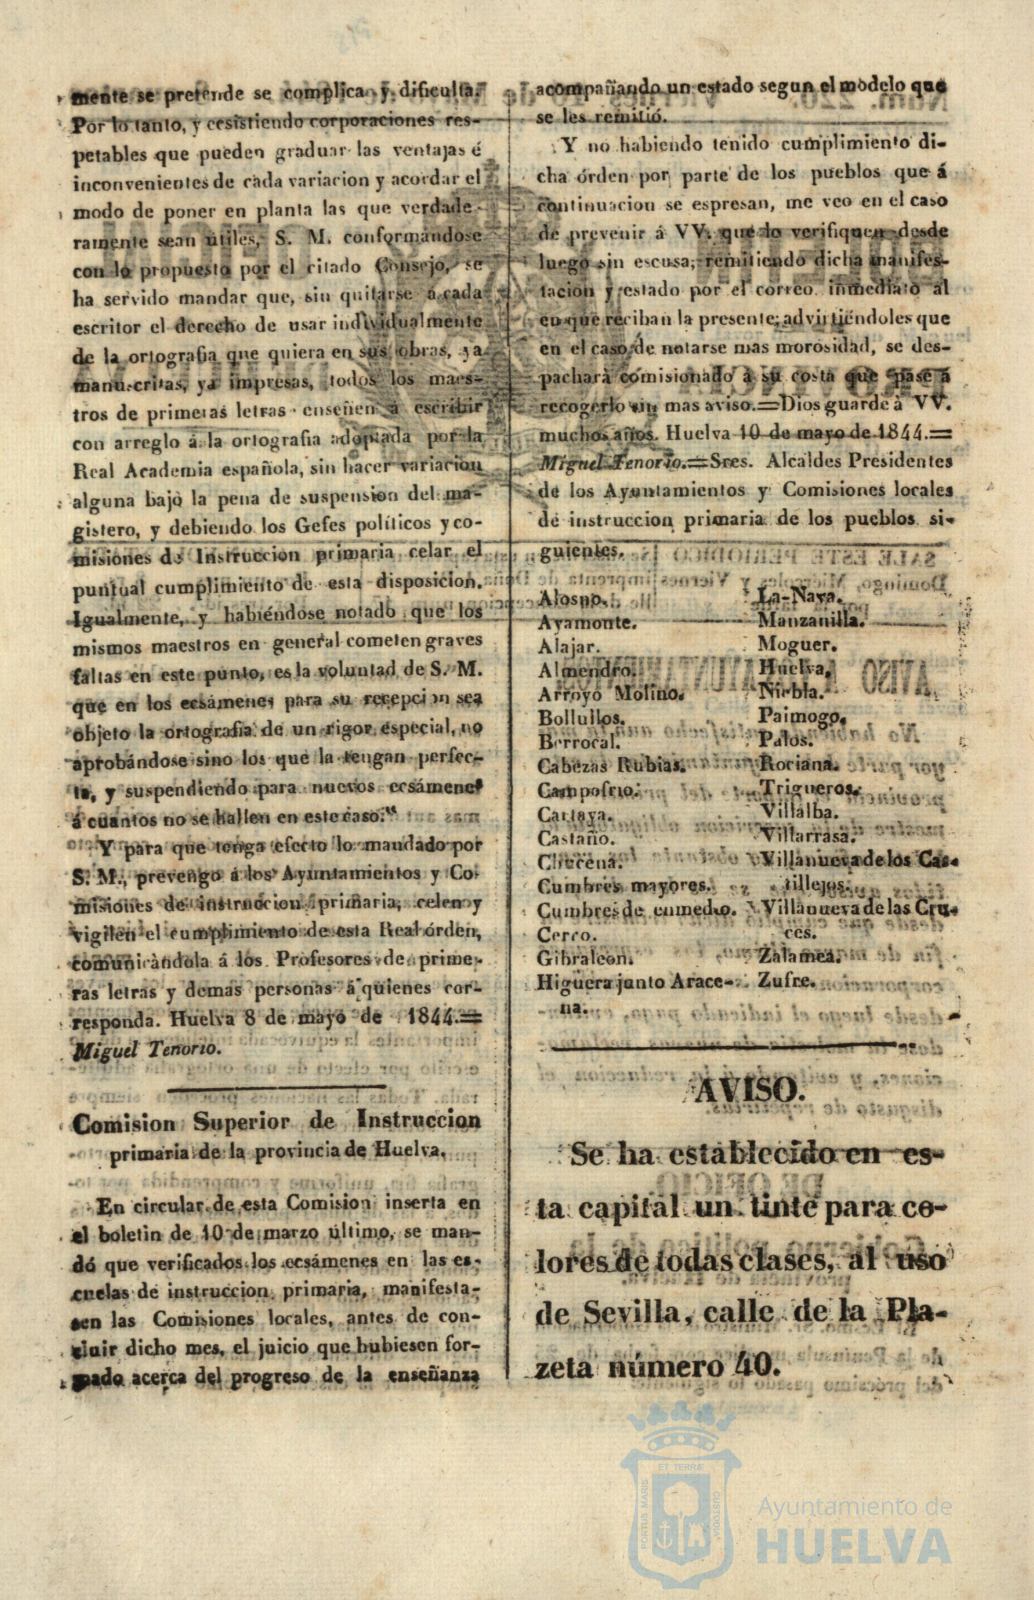 mente se pretende se complica y dificulta.
Por lo tanto, y ecsistiendo corporaciones res-
petables que pueden graduar las ventajas é
inconvenientes de cada variacion y acordar el
modo de poner en planta las que verdade-
ramente sean útiles, S. M. conformándose
con lo propuesto por el citado Consejo, se
ha servido mandar que, sin quitarse á cada
escritor el derecho de usar individualmente
de la ortografia que quiera en sus obras, ya
manuscritas, ya impresas, todos los maes-
tros de primeras letras enseñen á escribir
con arreglo á la ortografia adoptada por la
Real Academia española, sin hacer variacion
alguna bajo la pena de suspension del ma-
gistero, y debiendo los Gefes políticos y co-
misiones de Instruccion primaria celar el
puntual cumplimiento de esta disposicion.
Igualmente, y habiéndose notado que los
mismos maestros en general cometen graves
faltas en este punto, es la voluntad de S. M.
que en los ecsámenes para su recepcion sea
objeto la ortografia de un rigor especial, no
aprobándose sino los que la tengan perfec-
ta, y suspendiendo para nuevos ecsámenes
á cuantos no se hallen en este caso."
Y para que tenga efecto lo mandado por
S. M., prevengo á los Ayuntamientos y Co-
misiones de instruccion primaria, celen y
vigilen el cumplimiento de esta Real órden,
comunicàndola á los Profesores de prime-
ras letras y demas personas á quienes cor-
responda. Huelva 8 de mayo de 1844.=
Miguel Tenorio.
Comision Superior de Instruccion
primaria de la provincia de Huelva.
En circular de esta Comision inserta en
el boletin de 10 de marzo último, se man-
dó que verificados los ecsámenes en las es-
cuelas de instruccion primaria, manifesta-
sen las Comisiones locales, antes de con-
cluir dicho mes, el juicio que hubiesen for-
mado acerca del progreso de la enseñanza
acompañando un estado segun el modelo que
se les remitió.
Y no habiendo tenido cumplimiento di-
cha órden por parte de los pueblos que á
continuacion se espresan, me veo en el caso
de prevenir á VV. que lo verifiquen desde
luego sin escusa; remitiendo dicha manifes-
tacion y estado por el correo inmediato al
en que reciban la presente; advirtiéndoles que
en el caso de notarse mas morosidad, se des-
pachará comisionado á su costa que pase á
recogerlo sin mas aviso.=Dios guarde á VV.
muchos años. Huelva 10 de mayo de 1844.=
Miguel Tenorio.=Sres. Alcaldes Presidentes
de los Ayuntamientos y Comisiones locales
de instruccion primaria de los pueblos si-
guientes.
Alosno.
Ayamonte.
Alajar.
Almendro.
Arroyo Molino.
Bollullos.
Berrocal.
Cabezas Rubias.
Campofrio.
Cartaya.
Castaño.
Chucena.
Cumbres mayores.
Cumbres de enmedio.
Cerro.
Gibraleon.
Higuera junto Arace-
na.
La-Nava.
Manzanilla.
Moguer.
Huelva.
Niebla.
Paimogo.
Palos.
Rociana.
Trigueros.
Villalba.
Villarrasa.
Villanueva de los Cas-
tillejos.
Villanueva de las Cru-
ces.
Zalamea.
Zufre.
AVISO.
Se ha establecido en es-
ta capital un tinte para co-
lores de todas clases, al uso
de Sevilla, calle de la Pla-
zeta número 40.
PORTUS MARIS
ET TERRÆ
CUSTODIA
Ayuntamiento de
HUELVA